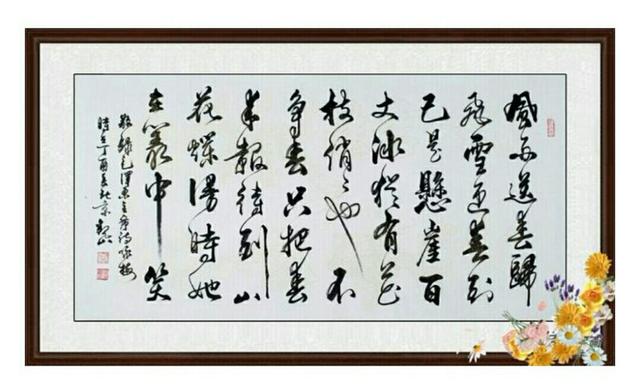 風雨送春歸
飛雪迎春到
已是懸崖百
丈冰猶有花
枝俏〻也不
爭春只把春
來報待到山
花爛漫時她
在叢中笑
敬錄毛澤東主席詩詠梅
時在丁酉春北京